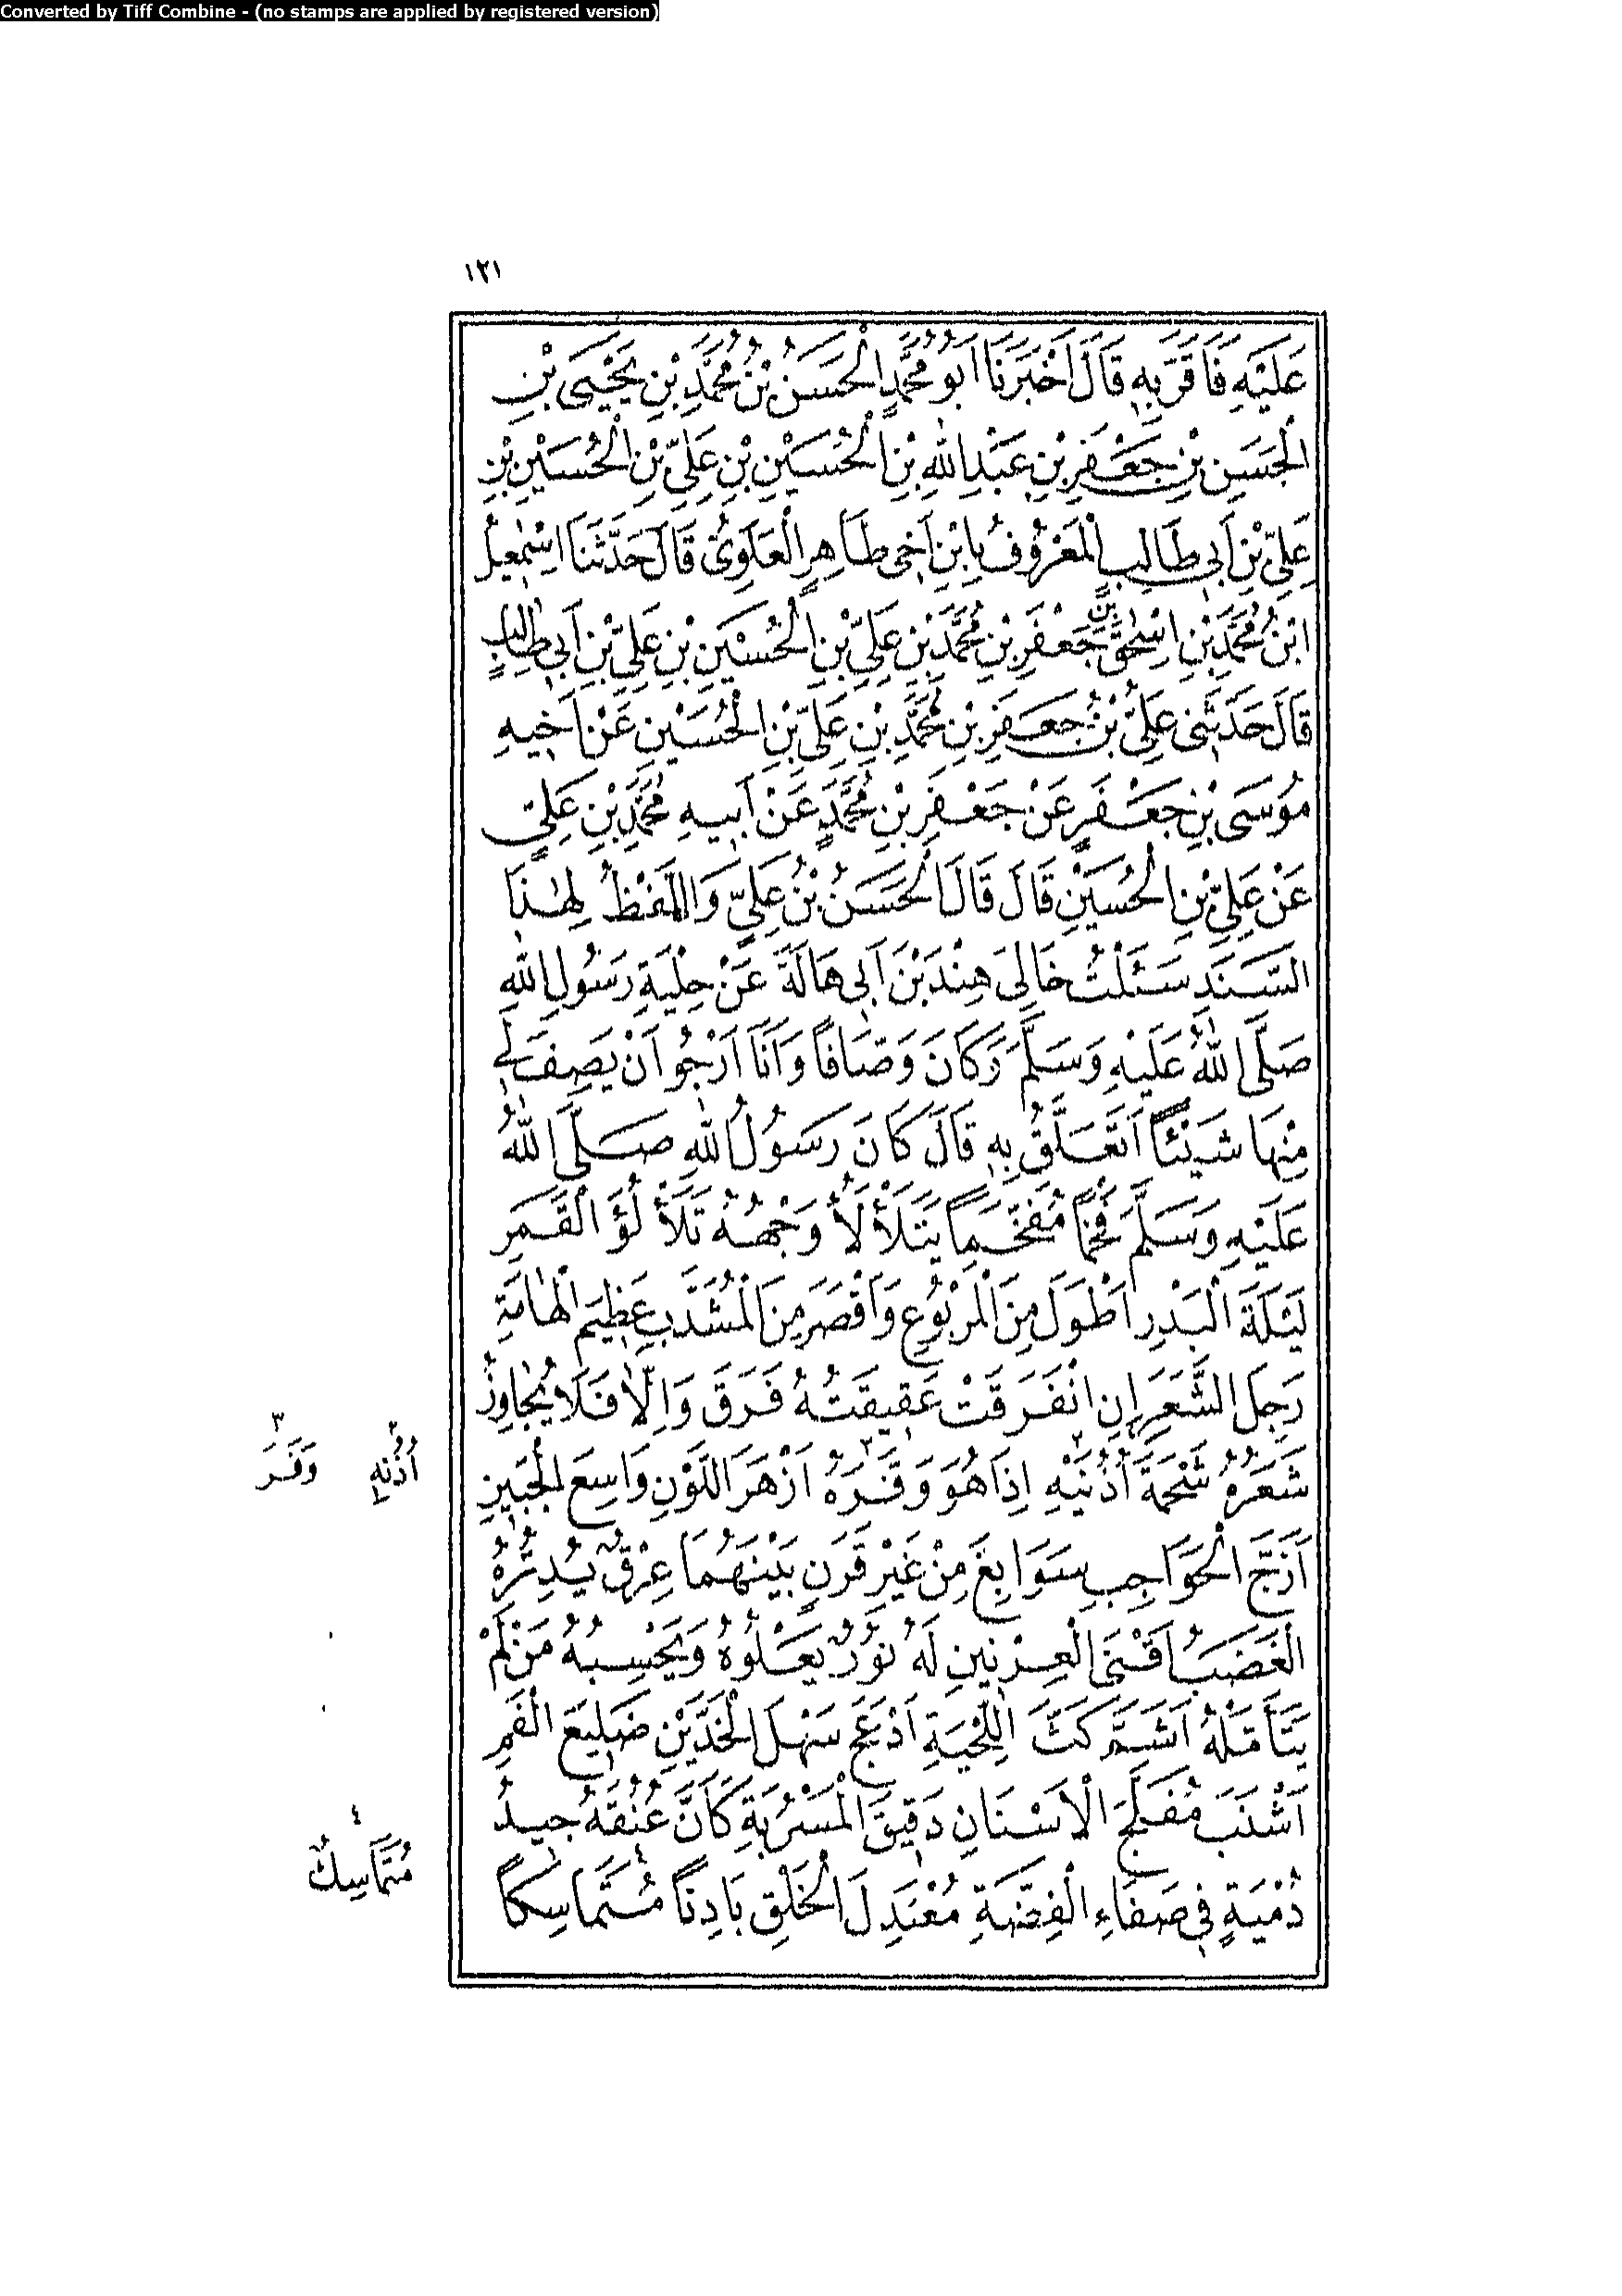 Converted by Tiff Combine - (no stamps are applied by registered version)
١٢١
عَلَيْهِ فَأَقَرَّ بِهِ قَالَ أَخْبَرَنَا أَبُو مُحَمَّدٍ الْحَسَنُ بْنُ مُحَمَّدِ بْنِ يَحْيَى بْنِ
الْحَسَنِ بْنِ جَعْفَرِ بْنِ عَبْدِ اللّٰهِ بْنِ الْحُسَيْنِ بْنِ عَلِيِّ بْنِ الْحُسَيْنِ بْنِ
عَلِيِّ بْنِ أَبِي طَالِبٍ الْمَعْرُوفُ بِابْنِ أَخِي طَاهِرٍ الْعَلَوِيُّ قَالَ حَدَّثَنَا اِسْمٰعِيلُ
ابْنُ مُحَمَّدِ بْنِ اِسْحٰقَ بْنِ جَعْفَرِ بْنِ مُحَمَّدِ بْنِ عَلِيِّ بْنِ الْحُسَيْنِ بْنِ عَلِيِّ بْنِ أَبِي طَالِبٍ
قَالَ حَدَّثَنِي عَلِيُّ بْنُ جَعْفَرِ بْنِ مُحَمَّدِ بْنِ عَلِيِّ بْنِ الْحُسَيْنِ عَنْ أَخِيهِ
مُوسَى بْنِ جَعْفَرٍ عَنْ جَعْفَرِ بْنِ مُحَمَّدٍ عَنْ أَبِيهِ مُحَمَّدِ بْنِ عَلِيٍّ
عَنْ عَلِيِّ بْنِ الْحُسَيْنِ قَالَ قَالَ الْحَسَنُ بْنُ عَلِيٍّ وَاللَّفْظُ لِهٰذَا
السَّنَدِ سَئَلْتُ خَالِيَ هِنْدَ بْنَ أَبِي هَالَةَ عَنْ حِلْيَةِ رَسُولِ اللّٰهِ
صَلَّى اللّٰهُ عَلَيْهِ وَسَلَّمَ وَكَانَ وَصَّافًا وَأَنَا أَرْجُو أَنْ يَصِفَ لِي
مِنْهَا شَيْئًا أَتَعَلَّقُ بِهِ قَالَ كَانَ رَسُولُ اللّٰهِ صَلَّى اللّٰهُ
عَلَيْهِ وَسَلَّمَ فَخْمًا مُفَخَّمًا يَتَلَأْلَأُ وَجْهُهُ تَلَأْلُؤَ الْقَمَرِ
لَيْلَةَ الْبَدْرِ أَطْوَلَ مِنَ الْمَرْبُوعِ وَأَقْصَرَ مِنَ الْمُشَذَّبِ عَظِيمَ الْهَامَةِ
رَجِلَ الشَّعَرِ إِنِ انْفَرَقَتْ عَقِيقَتُهُ فَرَقَ وَإِلَّا فَلَا يُجَاوِزُ
شَعَرُهُ شَحْمَةَ أُذُنَيْهِ إِذَا هُوَ وَفَّرَهُ أَزْهَرَ اللَّوْنِ وَاسِعَ الْجَبِينِ
أَزَجَّ الْحَوَاجِبِ سَوَابِغَ مِنْ غَيْرِ قَرَنٍ بَيْنَهُمَا عِرْقٌ يُدِرُّهُ
الْغَضَبُ أَقْنَى الْعِرْنِينِ لَهُ نُورٌ يَعْلُوهُ وَيَحْسِبُهُ مَنْ لَمْ
يَتَأَمَّلْهُ أَشَمَّ كَثَّ اللِّحْيَةِ أَدْعَجَ سَهْلَ الْخَدَّيْنِ ضَلِيعَ الْفَمِ
أَشْنَبَ مُفَلَّجَ الْأَسْنَانِ دَقِيقَ الْمَسْرُبَةِ كَأَنَّ عُنُقَهُ جِيدُ
دُمْيَةٍ فِي صَفَاءِ الْفِضَّةِ مُعْتَدِلَ الْخَلْقِ بَادِنًا مُتَمَاسِكًا
٢
أُذُنِهِ
٣
وَفَرَ
٤
مُتَمَاسِكٌ